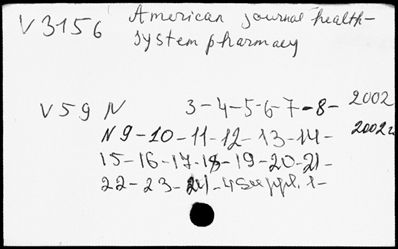 V3156 American journal health-
system pharmacy
V 59 N 3-4-5-6-7-8- 2002
N 9-10-11-12-13-14- 2002
15-16-17-18-19-20-21-
22-23-24-4 Suppl. 1-